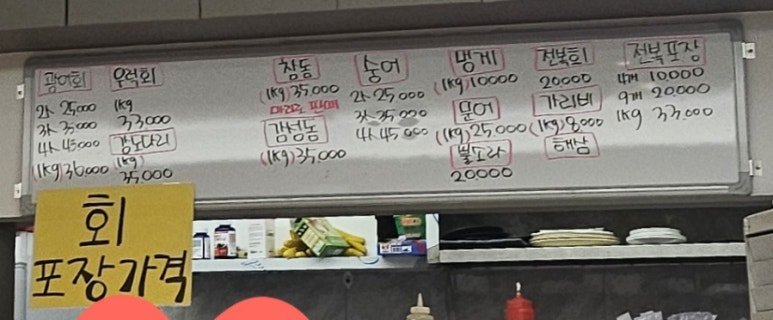 광어회
2人 25,000
3人 35000
4人 45000
(1kg) 36,000
우럭회
1kg
33,000
강도다리
(1kg)
35,000
참돔
(1kg) 35,000
마리로 판매
감성돔
(1kg) 35,000
숭어
2人 25,000
3人 35,000
4人 45,000
멍게
(1kg) 10000
문어
(1kg) 25,000
뿔소라
20,000
전복회
20000
가리비
(1kg) 8,000
해삼
전복포장
10,000
9개 20,000
1kg 33,000
회
포장가격